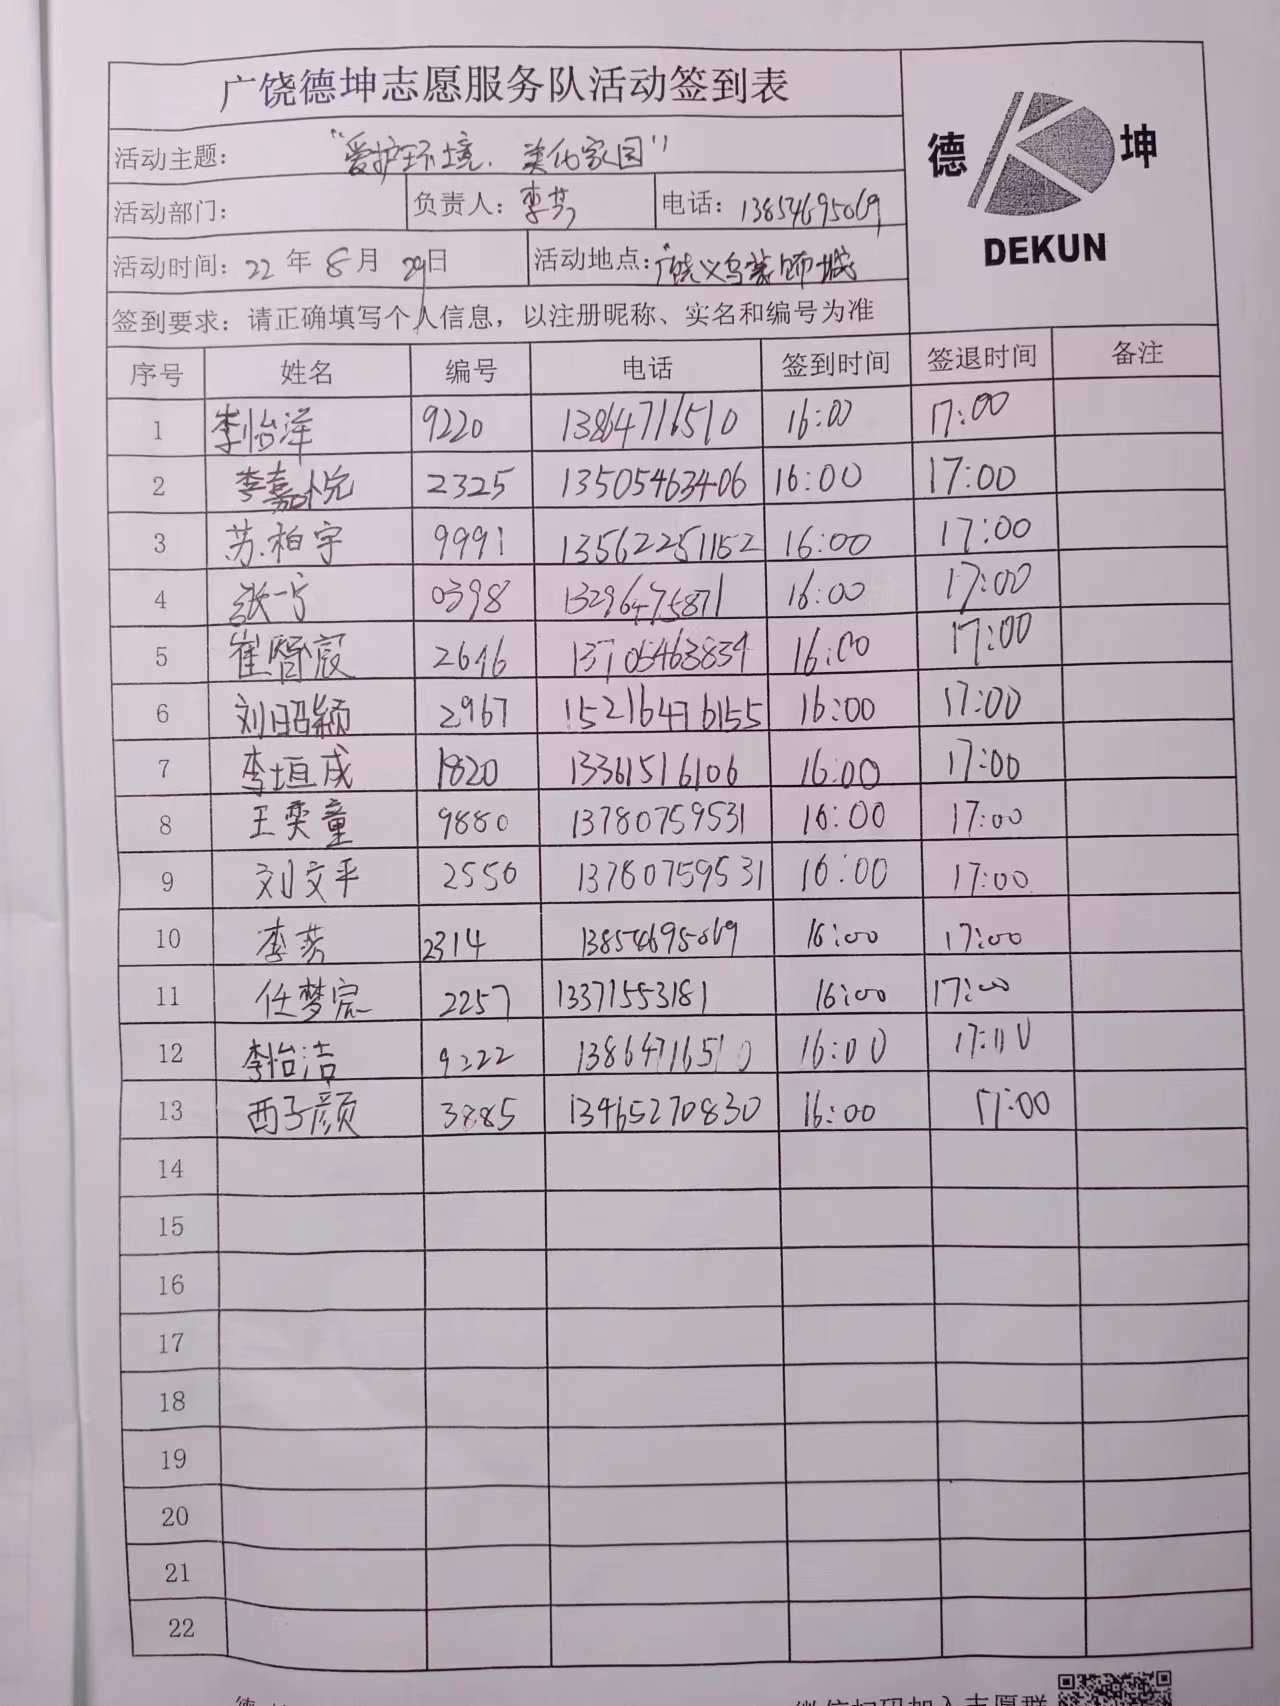 广饶德坤志愿服务队活动签到表
德 坤
DEKUN
活动主题： “爱护环境．美化家园”
活动部门： 负责人：李芳 电话：13854695069
活动时间：22 年 8 月 29日 活动地点：广饶义乌装饰城
签到要求：请正确填写个人信息，以注册昵称、实名和编号为准
序号 姓名 编号 电话 签到时间 签退时间 备注
1 李怡洋 9220 13864716510 16:00 17:00
2 李嘉悦 2325 13505463406 16:00 17:00
3 苏柏宇 9991 13562251152 16:00 17:00
4 张一宁 0398 13296475871 16:00 17:00
5 崔 2646 13705463834 16:00 17:00
6 刘昭颖 2967 15216476155 16:00 17:00
7 李垣成 1820 13361516106 16:00 17:00
8 王奕童 9880 13780759531 16:00 17:00
9 刘文平 2556 13780759531 16:00 17:00
10 李芳 2314 13854695069 16:00 17:00
11 任梦宸 2257 13371553181 16:00 17:00
12 李怡洁 9222 13864716510 16:00 17:00
13 西子颜 3885 13465270830 16:00 17:00
14
15
16
17
18
19
20
21
22
微信扫码加入志愿群